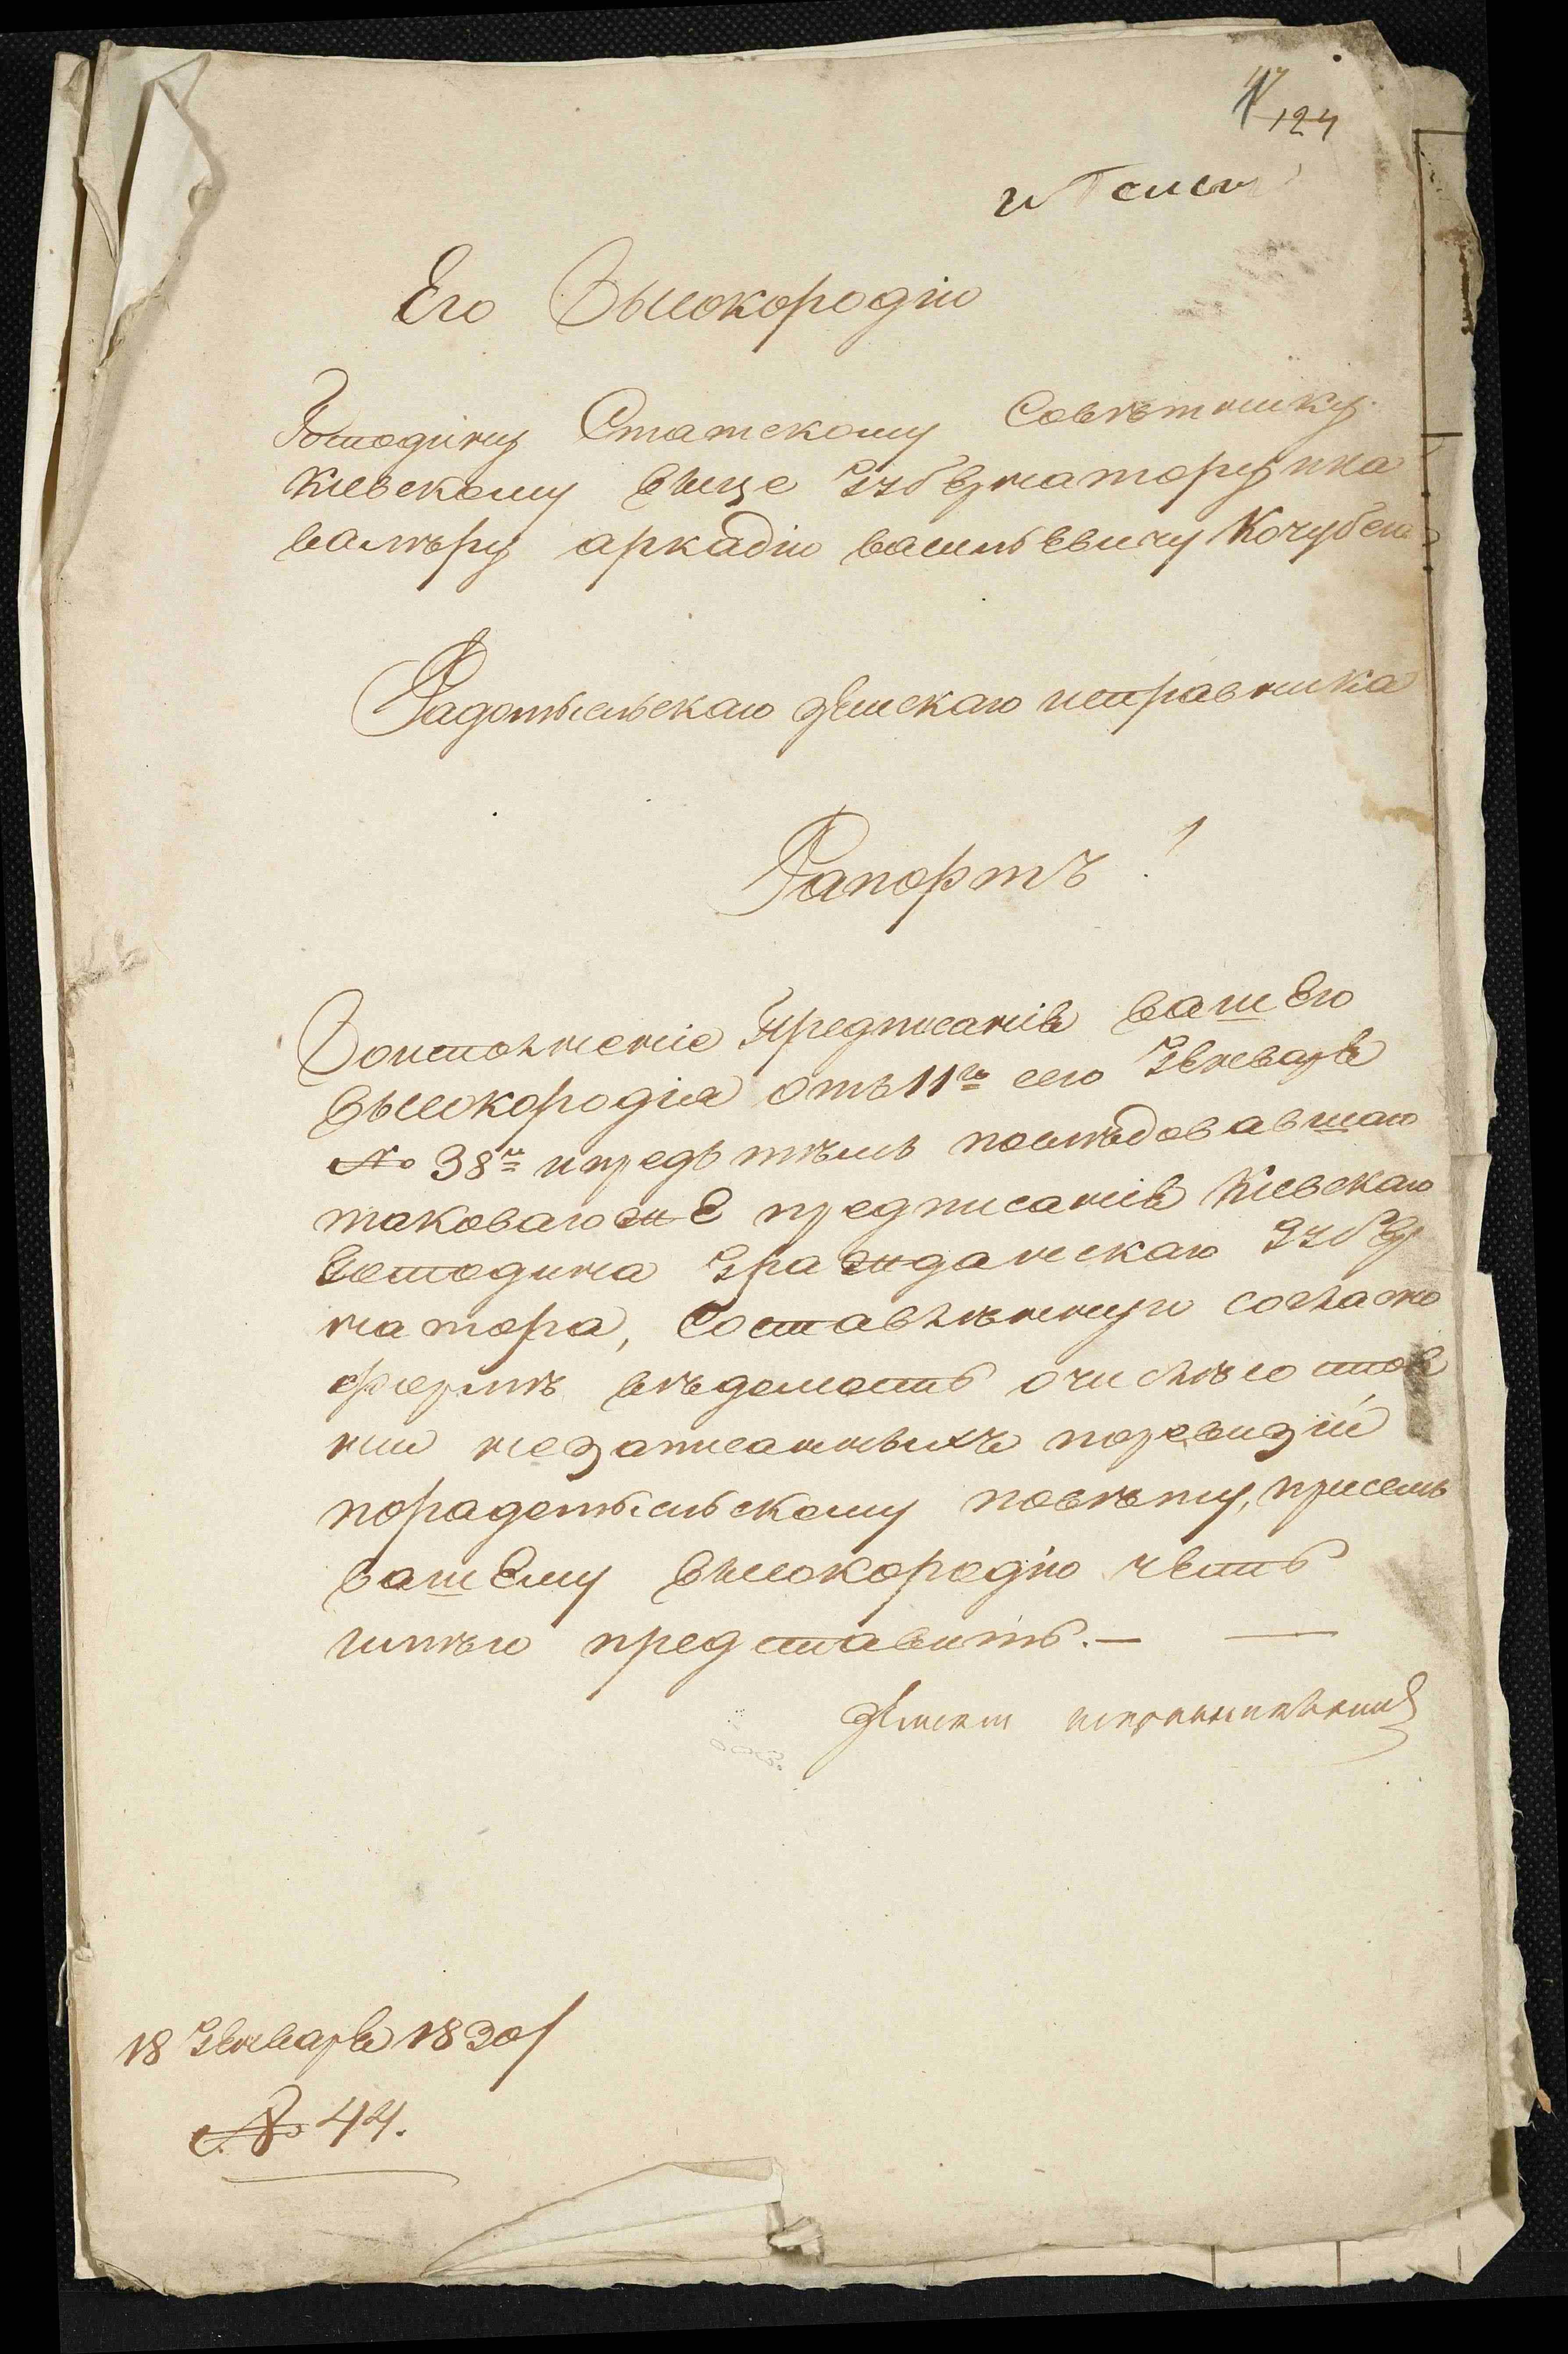 124
Его Высокородію
Господину Статскому Совѣтнику
Кіевскому вице Губернатору ика
валѣру аркадію васильевичу Кочубею
Радомысльскаго земскаго исправника
Рапортъ!
Воисполненіе Предписанія вашего
высокородія отъ 11го сего Генваря
№ 38м ипредъ тѣмъ последовавшаго
таковагоже предписанія Кіевскаго
Господина Гражданскаго Губер
натора, составлѣнную согласно
формѣ вѣдомость очислѣ состоя
ніи незаписанныхъ поревизіи
порадомысльскому повѣту, присемъ
вашему высокородію честь
имѣю представить. —
Земскій
18 Генваря 1830/
№ 44.